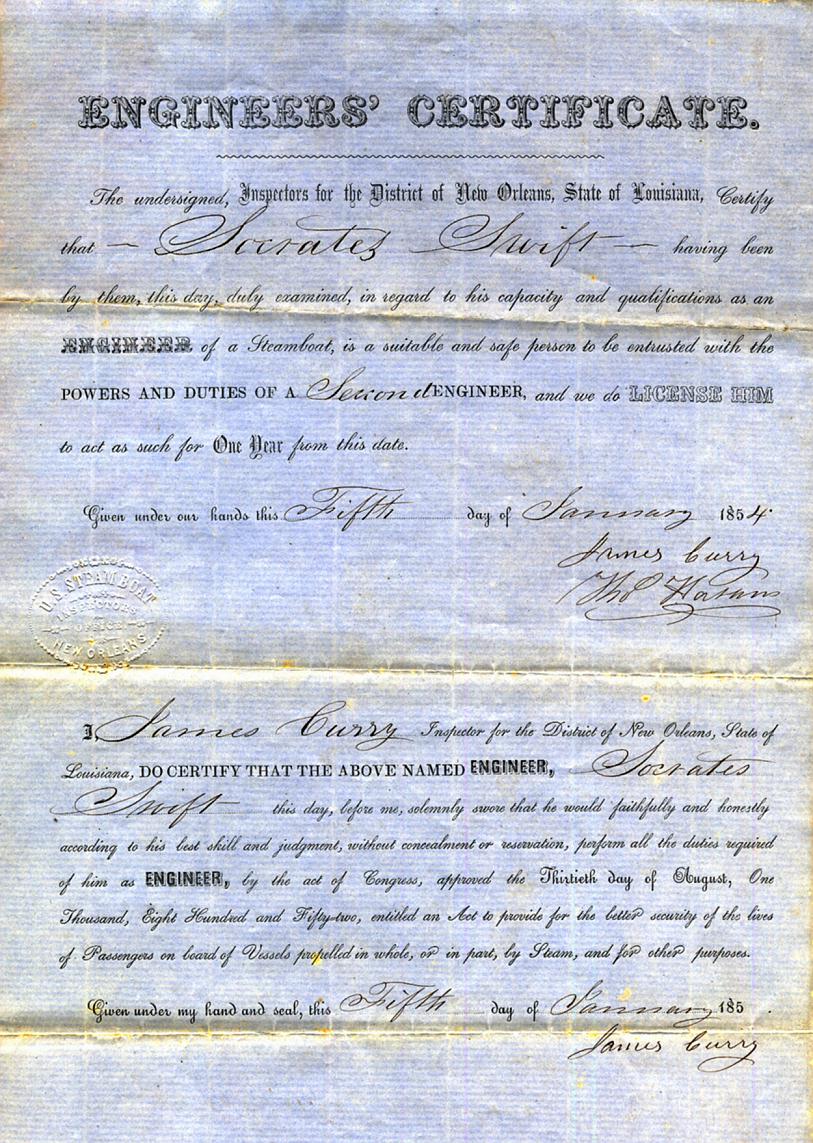 ENGINEERS' CERTIFICATE.
The undersigned, Inspectors for the District of New Orleans, State of Louisiana, Certify
that — Socrates Swift — having been
by them, this day, duly examined, in regard to his capacity and qualifications as an
ENGINEER of a Steamboat, is a suitable and safe person to be entrusted with the
POWERS AND DUTIES OF A Second ENGINEER, and we do LICENSE HIM
to act as such for One Year from this date.
Given under our hands this Fifth day of January 1854
James Curry
Tho
U.S. STEAM BOAT
INSPECTORS
OFFICE
NEW ORLEANS
I, James Curry Inspector for the District of New Orleans, State of
Louisiana, DO CERTIFY THAT THE ABOVE NAMED ENGINEER, Socrates
Swift this day, before me, solemnly swore that he would faithfully and honestly
according to his best skill and judgment, without concealment or reservation, perform all the duties required
of him as ENGINEER, by the act of Congress, approved the Thirtieth day of August, One
Thousand, Eight Hundred and Fifty-two, entitled an Act to provide for the better security of the lives
of Passengers on board of Vessels propelled in whole, or in part, by Steam, and for other purposes.
Given under my hand and seal, this Fifth day of January 185 .
James Curry